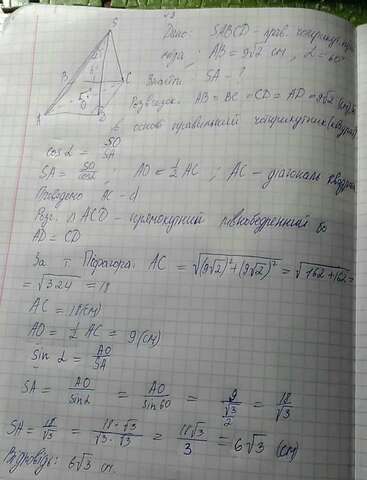 Дано: SABCD - прав. чотирикут. піра
міда; AB = 9√2 см, α = 60°
Знайти: SA - ?
Розвязок. AB = BC = CD = AD = 9√2 (см)
в основі правильний чотирикутник (квадрат)
cos α = SO/SA
SA = SO/cosα; AO = ½ AC; AC - діагональ квадрата
Проведемо AC - d
Розг. Δ ACD - прямокутний рівнобедренний бо
AD = CD
За т. Піфагора: AC = √((9√2)² + (9√2)²) = √(162 + 162) =
= √324 = 18
AC = 18 (см)
AO = ½ AC = 9 (см)
sin α = AO/SA
SA = AO/sinα = AO/sin60 = 9/(√3/2) = 18/√3
SA = 18/√3 = (18·√3)/(√3·√3) = 18√3/3 = 6√3 (см)
Відповідь: 6√3 см.
S
B
C
A
O
D